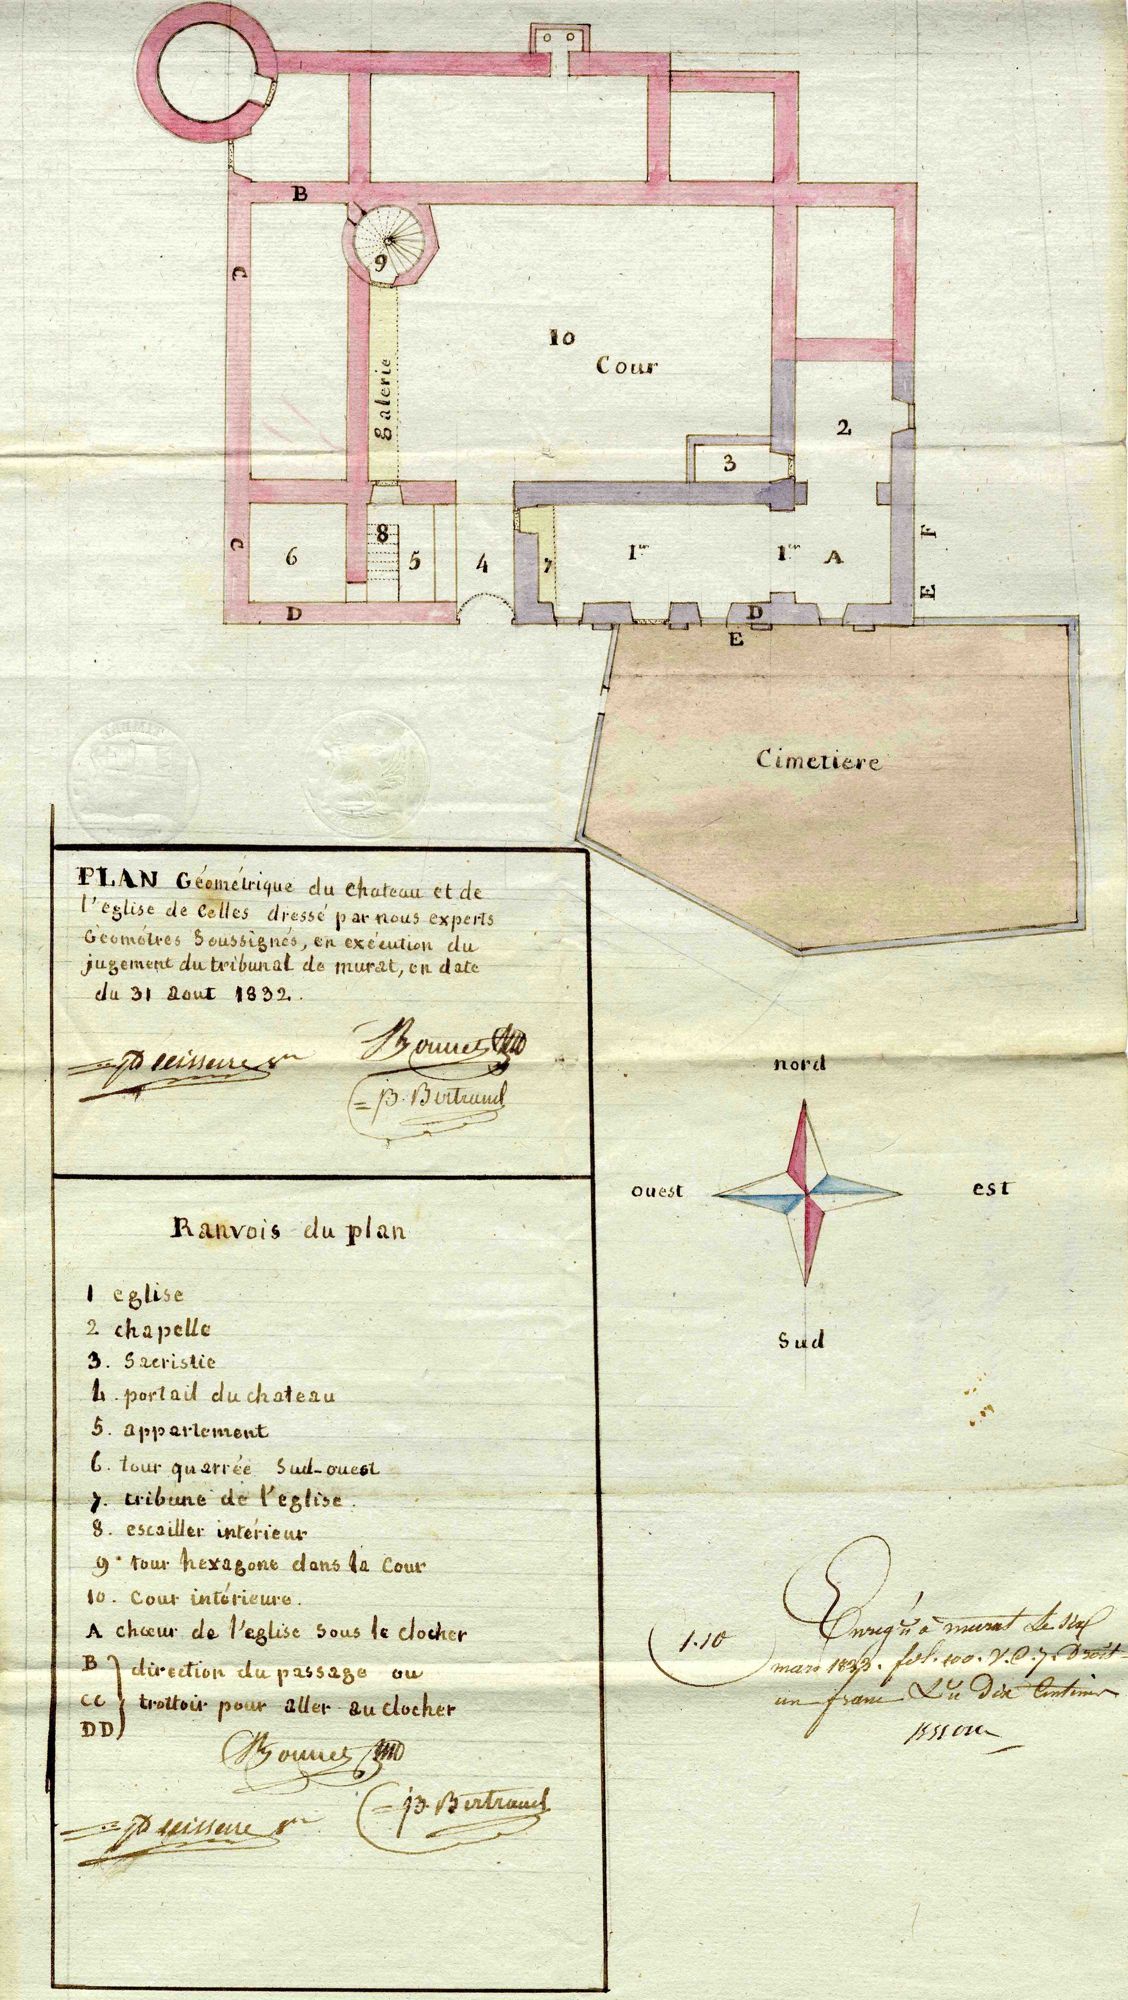 B
C
9
10
Cour
Galerie
2
3
C
6
8
5
4
7
1er
1er
A
F
E
D
D
E
Cimetiere
PLAN Géométrique du chateau et de
l'eglise de Celles dressé par nous experts
Géométres Soussignés, en exécution du
jugement du tribunal de murat, en date
du 31 Aout 1832.
Bonnet
B. Bertrand
nord
ouest
est
Sud
Ranvois du plan
1 eglise
2 chapelle
3. Sacristie
4. portail du chateau
5. appartement
6. tour quarrée Sud-ouest
7. tribune de l'eglise.
8. escailler intérieur
9. tour hexagone dans la Cour
10. Cour intérieure.
A chœur de l'eglise sous le clocher
B direction du passage ou
CC trottoir pour aller au clocher
DD
Bonnet
B. Bertrand
1.10
à murat Le
mars 1833. fol. 100. V. C. 7. Droit
un franc Dix Centimes